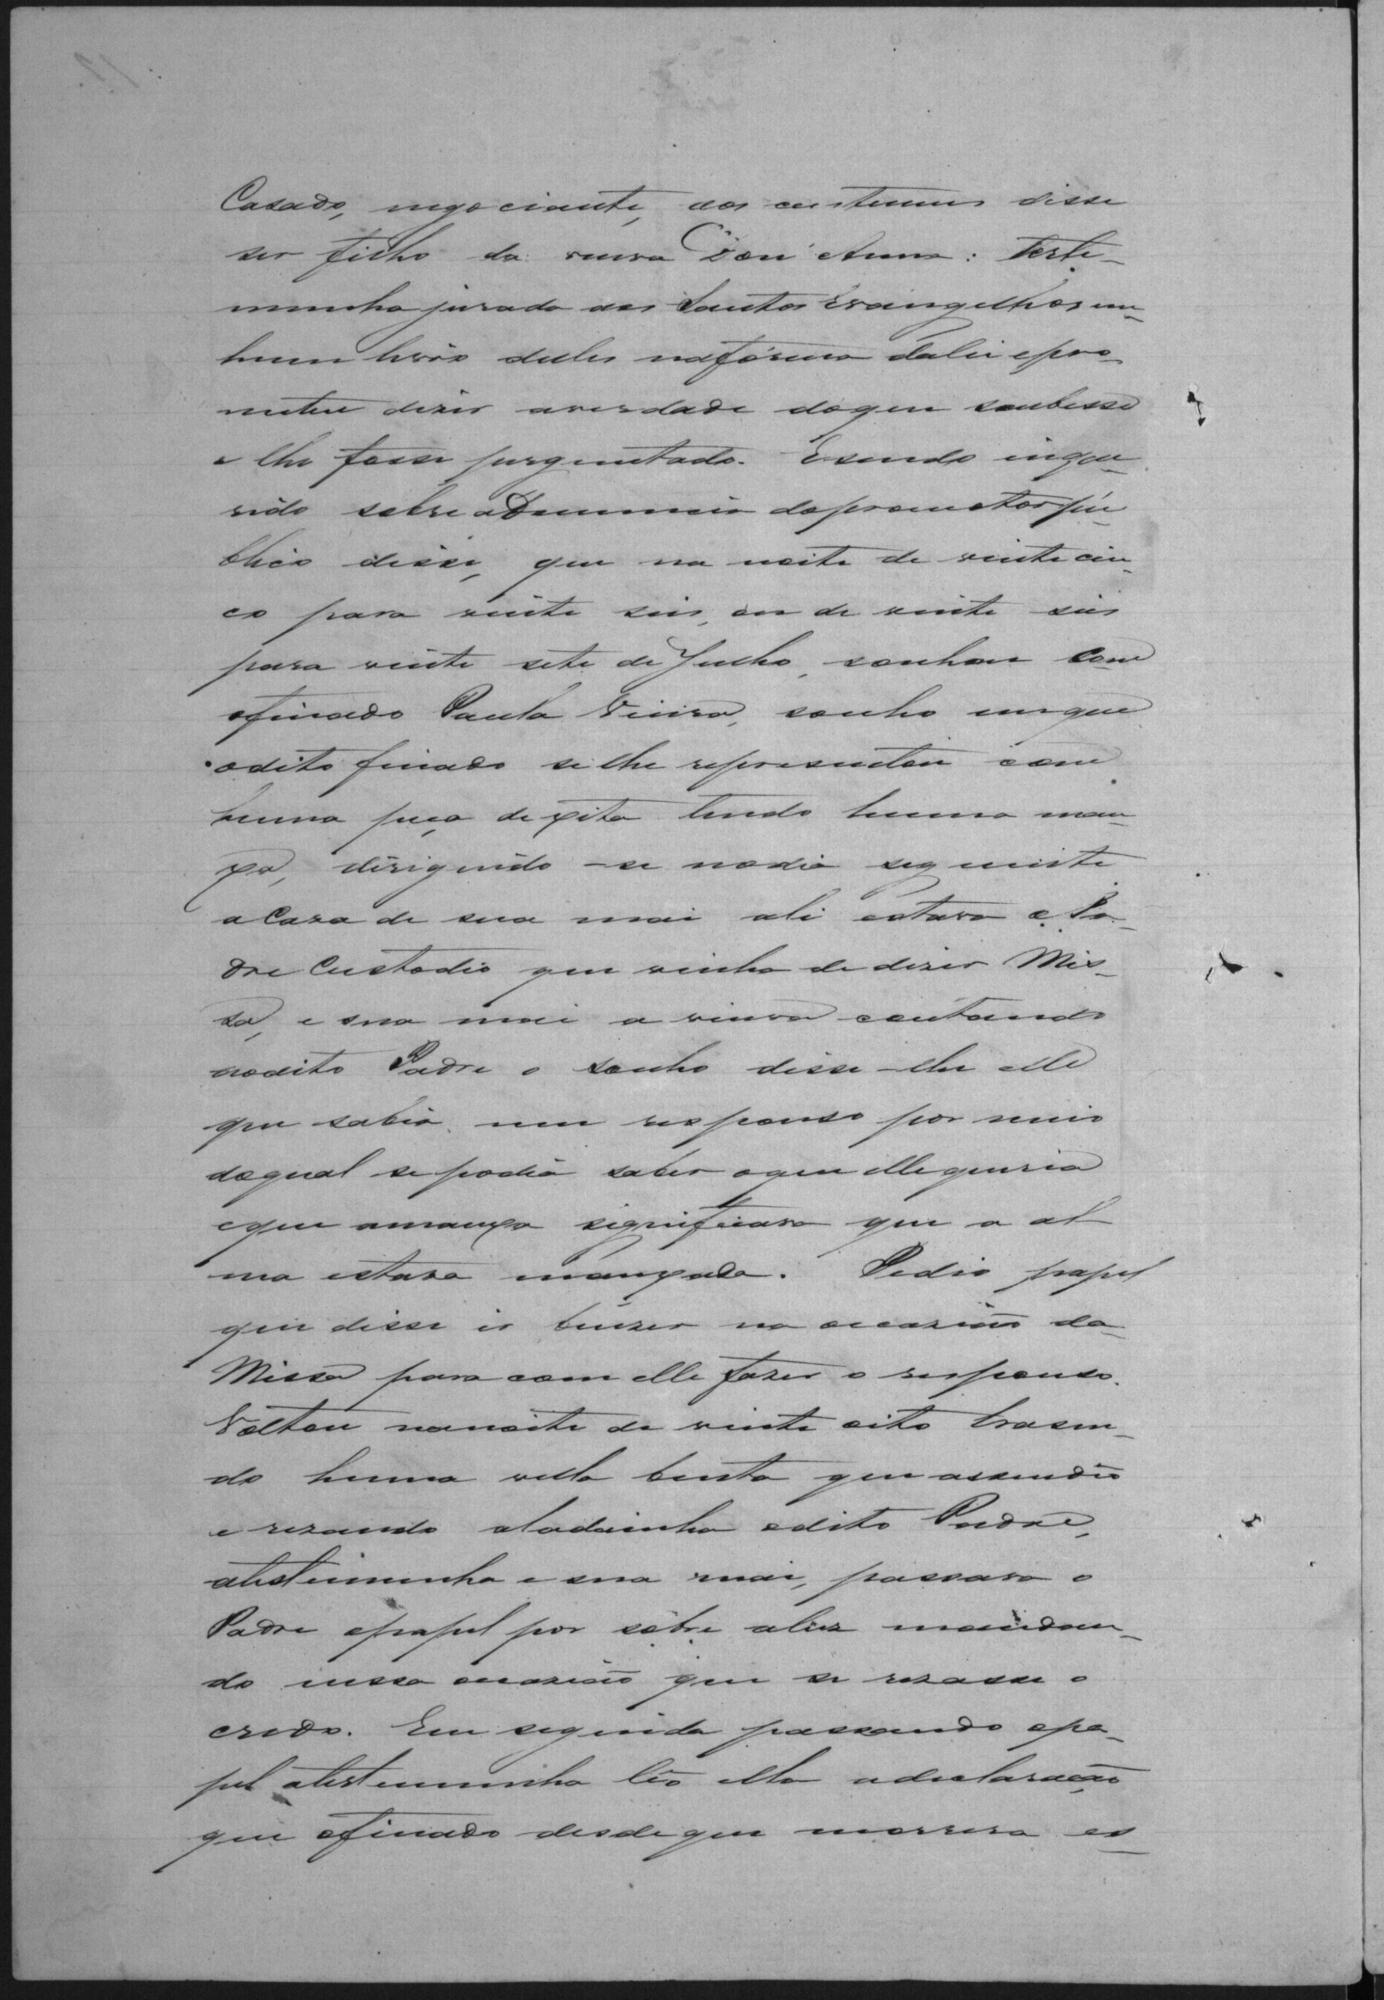 Casado, negociante, aos custumes disse
ser filho da viuva Don' Anna: teste-
munha jurada aos Santos Evangelhos em
hum livro delles na forma da lei e pro-
meteu dizer averdade doque soubesse
e lhe fosse perguntado. E sendo inque-
rido sobre a Denuncia do promotor pú-
blico disse, que na noite de vinte cin-
co para vinte seis, ou de vinte seis
para vinte sete de Julho, sonhou com
ofinado Paula Vieira, sonho em que
odito finado se lhe representou com
huma peça de xita tendo huma man-
xa, dirigindo-se nodia seguinte
a Caza de sua mai ali estava o Pa-
dre Custodio que vinha de dizer Mis-
sa, e sua mai a viuva contando
aodito Padre o sonho disse-lhe elle
que sabia um responso por meio
doqual se podia saber oque elle queria
eque amanxa significava que a al-
ma estava manxada. Pedio papel
que disse ir benzer na occazião da
Missa para com elle fazer o responso.
Voltou nanoite de vinte oito trasen-
do huma vella benta que assendeu
e rezando aladainha odito Padre,
atestemunha e sua mai, passava o
Padre opapel por sobre aluz mandan-
do nessa occazião que se rezasse o
credo. Em seguida passando opa-
pel atestemunha leo ella a declaração
que ofinado desdeque morrera es-